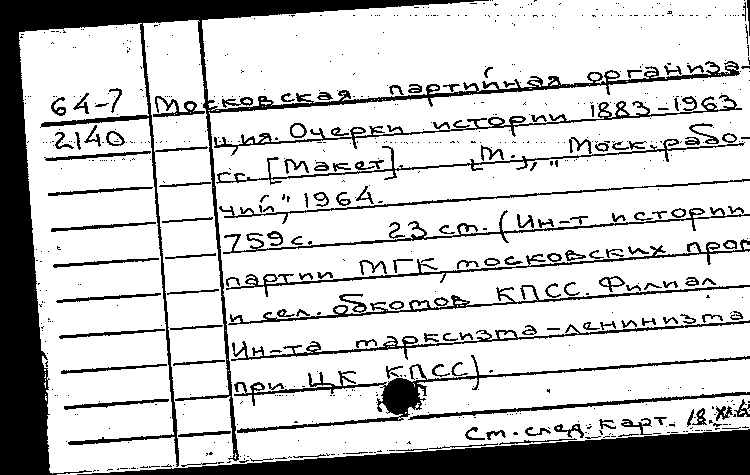 64-7 Московская партийная организа-
2140 ция. Очерки истории 1883-1963
гг. [Макет]. [М.], „Моск. рабо-
чий", 1964.
759 с. 23 см. (Ин-т истории
партии МГК, московских пром.
и сел. обкомов КПСС. Филиал
Ин-та марксизма-ленинизма
при ЦК КПСС).
См. след. карт. 18.XII.6